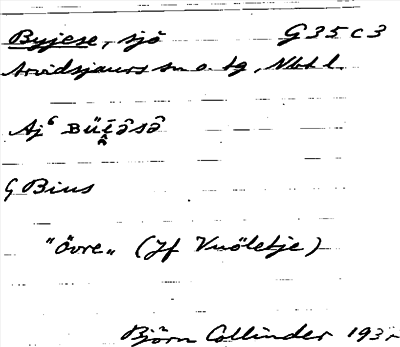 Byjese, sjö G 35 c 3
Arvidsjaurs sn o. tg, Nbt l.
Aj⁶
G Bius
"övre" (Jf Vuöletje)
Björn Collinder 193